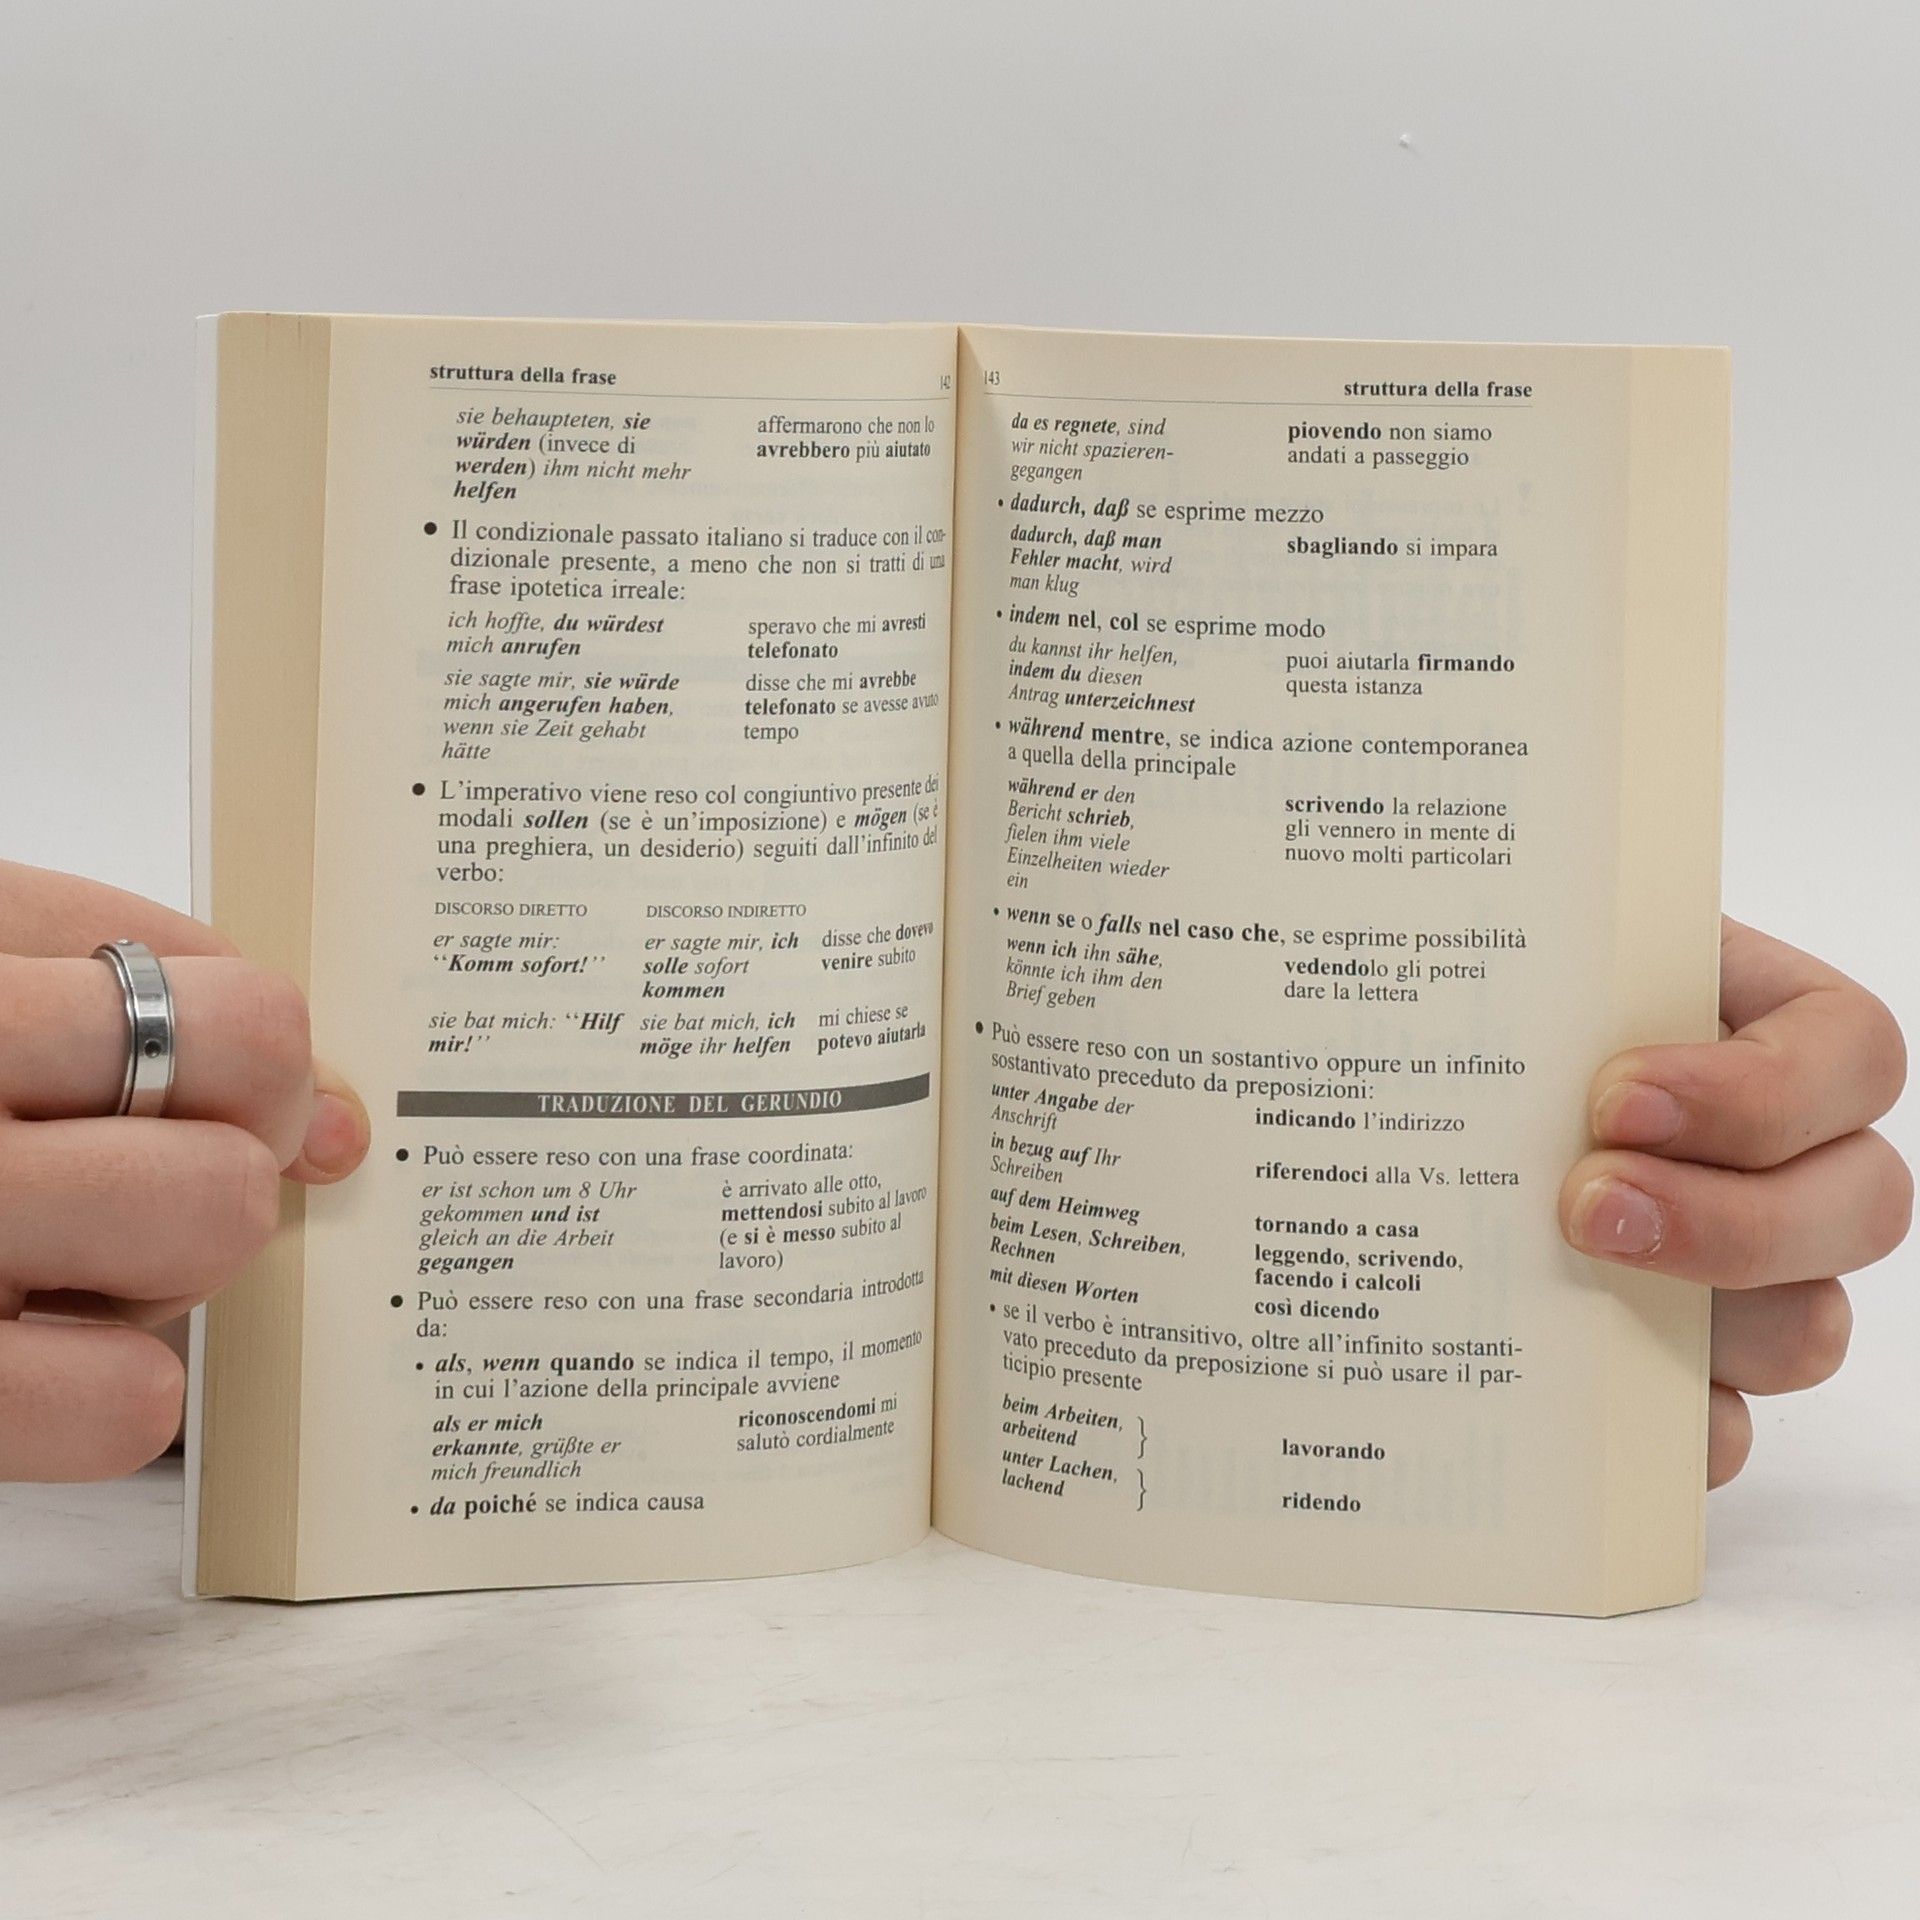 struttura della frase 142
sie behaupteten, sie affermarono che non lo
würden (invece di avrebbero più aiutato
werden) ihm nicht mehr
helfen
● Il condizionale passato italiano si traduce con il con-
dizionale presente, a meno che non si tratti di una
frase ipotetica irreale:
ich hoffte, du würdest speravo che mi avresti
mich anrufen telefonato
sie sagte mir, sie würde disse che mi avrebbe
mich angerufen haben, telefonato se avesse avuto
wenn sie Zeit gehabt tempo
hätte
● L'imperativo viene reso col congiuntivo presente dei
modali sollen (se è un'imposizione) e mögen (se è
una preghiera, un desiderio) seguiti dall'infinito del
verbo:
DISCORSO DIRETTO DISCORSO INDIRETTO
er sagte mir: er sagte mir, ich disse che dovevo
“Komm sofort!” solle sofort venire subito
kommen
sie bat mich: “Hilf sie bat mich, ich mi chiese se
mir!” möge ihr helfen potevo aiutarla
TRADUZIONE DEL GERUNDIO
● Può essere reso con una frase coordinata:
er ist schon um 8 Uhr è arrivato alle otto,
gekommen und ist mettendosi subito al lavoro
gleich an die Arbeit (e si è messo subito al
gegangen lavoro)
● Può essere reso con una frase secondaria introdotta
da:
• als, wenn quando se indica il tempo, il momento
in cui l'azione della principale avviene
als er mich riconoscendomi mi
erkannte, grüßte er salutò cordialmente
mich freundlich
• da poiché se indica causa
143 struttura della frase
da es regnete, sind piovendo non siamo
wir nicht spazieren- andati a passeggio
gegangen
• dadurch, daß se esprime mezzo
dadurch, daß man sbagliando si impara
Fehler macht, wird
man klug
• indem nel, col se esprime modo
du kannst ihr helfen, puoi aiutarla firmando
indem du diesen questa istanza
Antrag unterzeichnest
• während mentre, se indica azione contemporanea
a quella della principale
während er den scrivendo la relazione
Bericht schrieb, gli vennero in mente di
fielen ihm viele nuovo molti particolari
Einzelheiten wieder
ein
• wenn se o falls nel caso che, se esprime possibilità
wenn ich ihn sähe, vedendolo gli potrei
könnte ich ihm den dare la lettera
Brief geben
● Può essere reso con un sostantivo oppure un infinito
sostantivato preceduto da preposizioni:
unter Angabe der indicando l'indirizzo
Anschrift
in bezug auf Ihr riferendoci alla Vs. lettera
Schreiben
auf dem Heimweg tornando a casa
beim Lesen, Schreiben, leggendo, scrivendo,
Rechnen facendo i calcoli
mit diesen Worten così dicendo
• se il verbo è intransitivo, oltre all'infinito sostanti-
vato preceduto da preposizione si può usare il par-
ticipio presente
beim Arbeiten, } lavorando
arbeitend
unter Lachen, } ridendo
lachend